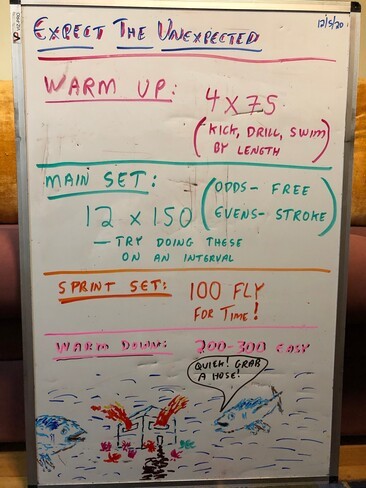 12/5/20
EXPECT THE UNEXPECTED
WARM UP:
4 X 75
(KICK, DRILL, SWIM
BY LENGTH)
MAIN SET:
(ODDS- FREE
EVENS- STROKE)
12 X 150
- TRY DOING THESE
ON AN INTERVAL
SPRINT SET:
100 FLY
FOR TIME!
WARM DOWN:
200-300 EASY
QUICK! GRAB
A HOSE!